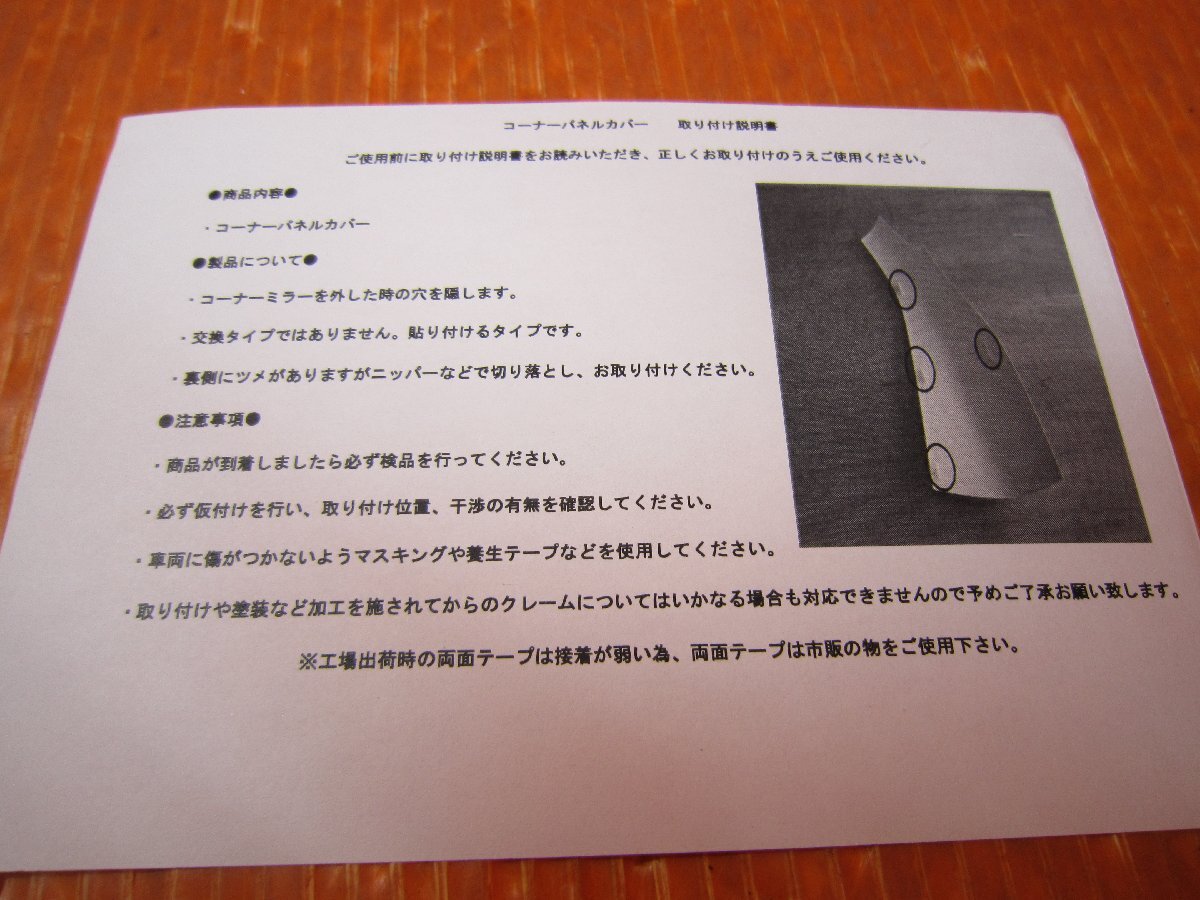 コーナーパネルカバー　取り付け説明書
ご使用前に取り付け説明書をお読みいただき、正しくお取り付けのうえご使用ください。
●商品内容●
・コーナーパネルカバー
●製品について●
・コーナーミラーを外した時の穴を隠します。
・交換タイプではありません。貼り付けるタイプです。
・裏側にツメがありますがニッパーなどで切り落とし、お取り付けください。
●注意事項●
・商品が到着しましたら必ず検品を行ってください。
・必ず仮付けを行い、取り付け位置、干渉の有無を確認してください。
・車両に傷がつかないようマスキングや養生テープなどを使用してください。
・取り付けや塗装など加工を施されてからのクレームについてはいかなる場合も対応できませんので予めご了承お願い致します。
※工場出荷時の両面テープは接着が弱い為、両面テープは市販の物をご使用下さい。